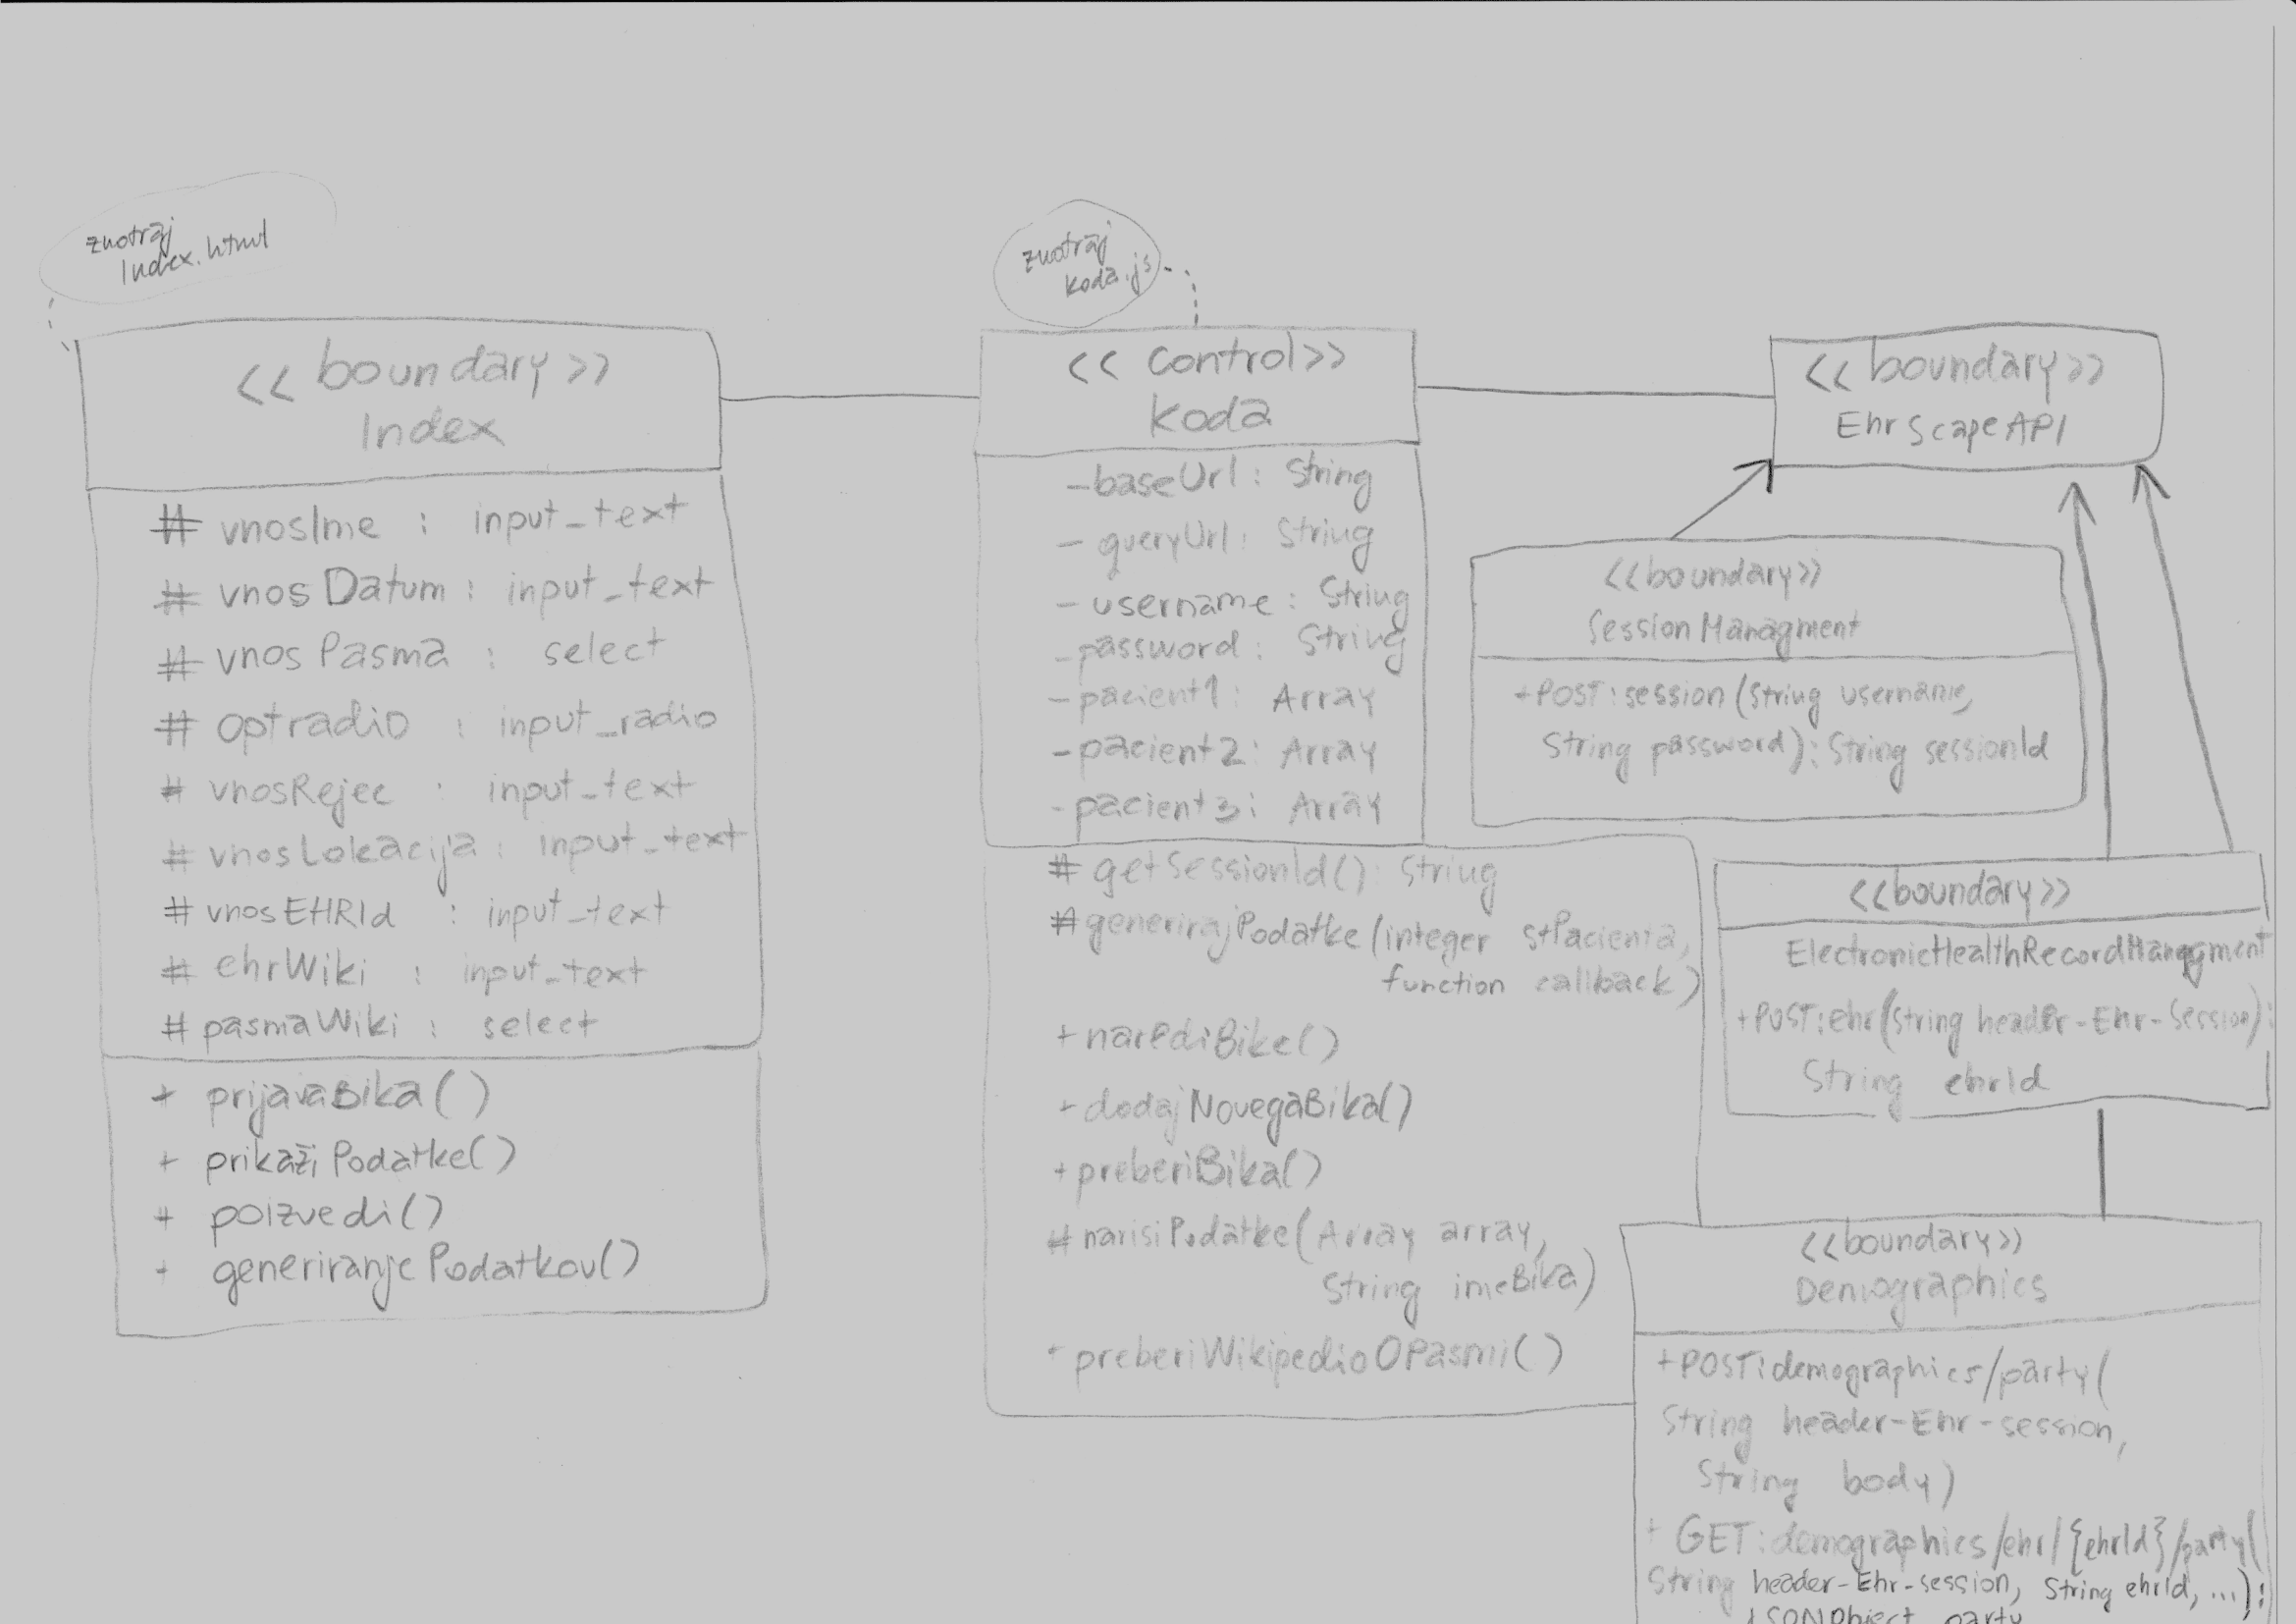 znotraj
Index.html
<<boundary>>
Index
# vnosIme : input_text
# vnosDatum : input_text
# vnosPasma : select
# optradio : input_radio
# vnosRejec : input_text
# vnosLokacija : input_text
# vnosEHRId : input_text
# ehrWiki : input_text
# pasmaWiki : select
+ prijavaBika()
+ prikažiPodatke()
+ poizvedi()
+ generiranjePodatkov()
znotraj
koda.js
<<control>>
koda
- baseUrl : String
- queryUrl : String
- username : String
- password : String
- pacient1 : Array
- pacient2 : Array
- pacient3 : Array
# getSessionId() : String
# generirajPodatke(integer stPacienta,
function callback)
+ narediBike()
+ dodajNovegaBika()
+ preberiBika()
# narisiPodatke(Array array,
String imeBika)
+ preberiWikipedioOPasmi()
<<boundary>>
EhrScapeAPI
<<boundary>>
SessionManagment
+POST:session(String username,
String password):String sessionId
<<boundary>>
ElectronicHealthRecordManagment
+POST:ehr(String header-Ehr-Session):
String ehrId
<<boundary>>
Demographics
+POST:demographics/party(
String header-Ehr-session,
String body)
+ GET:demographics/ehr/{ehrId}/party(
String header-Ehr-session, String ehrId, ...):
JSONObject party